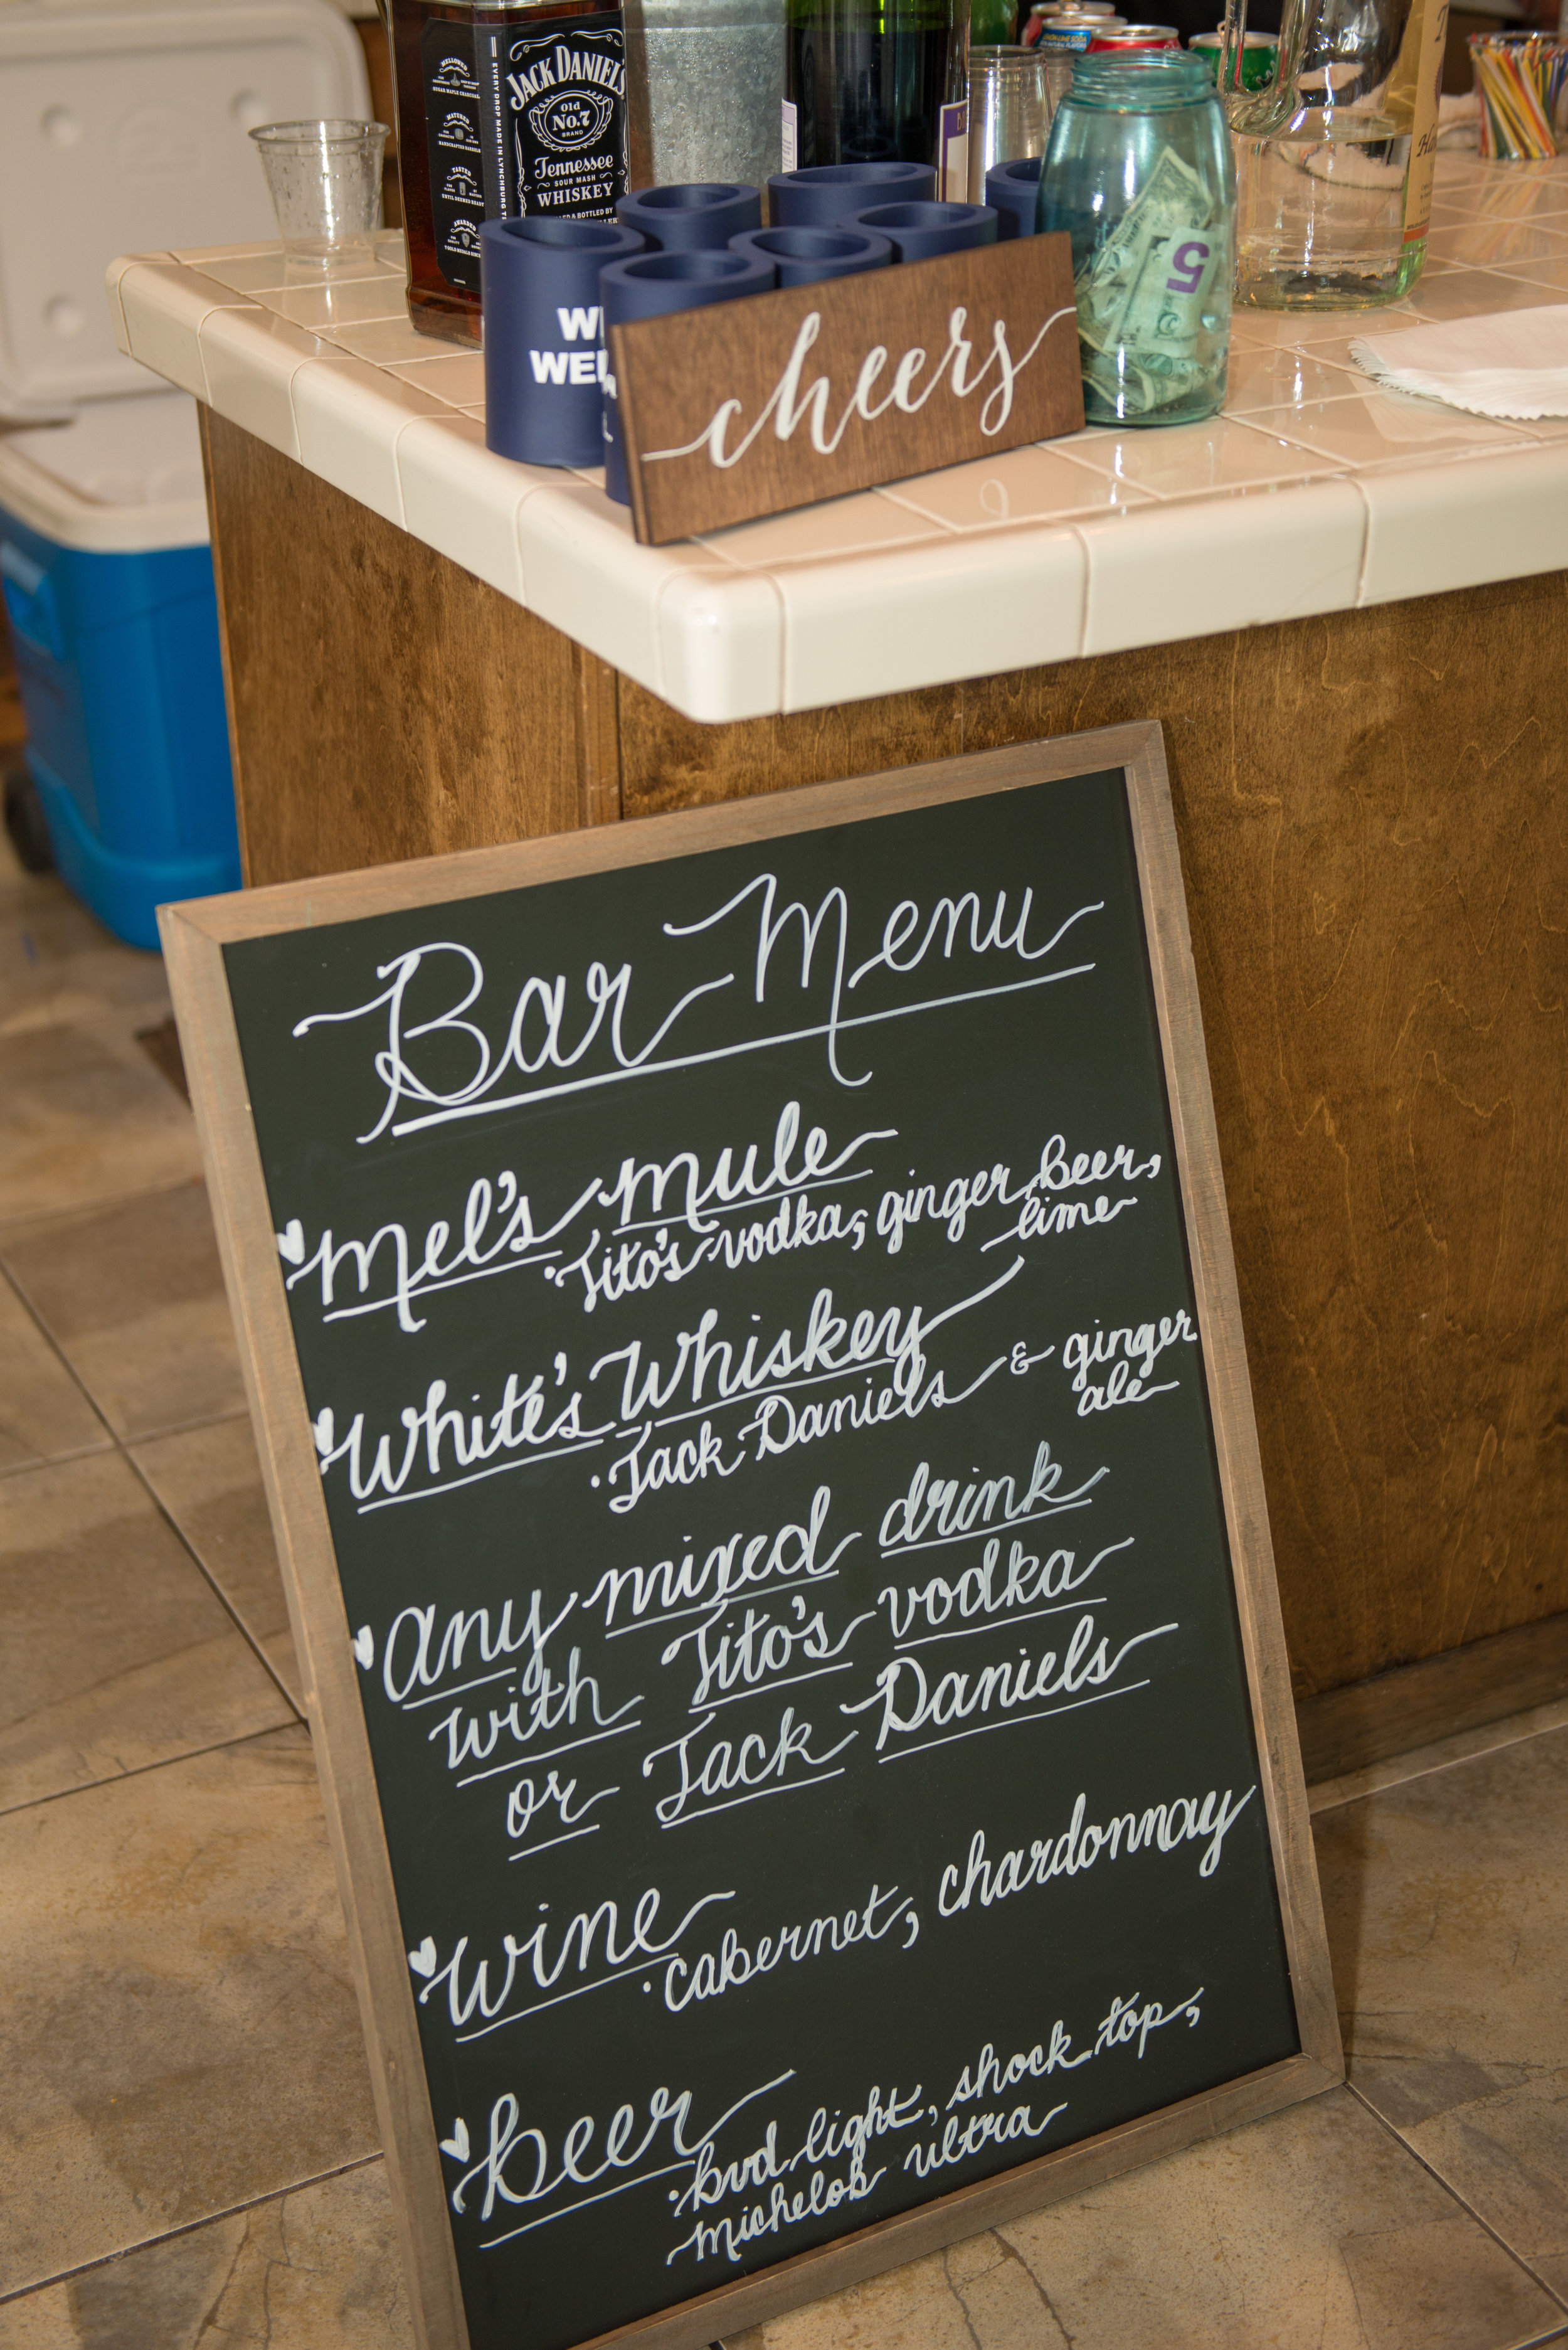 JACK DANIEL'S
Old
No.7
BRAND
Tennessee
SOUR MASH
WHISKEY
EVERY DROP MADE IN LYNCHBURG
MELLOWED
MATURED
TASTED
AWARDED
5
cheers
Bar Menu
Mel's mule
·Tito's vodka, ginger beer,
lime
White's Whiskey
·Jack Daniels & ginger
ale
any mixed drink
with Tito's vodka
or Jack Daniels
wine
·cabernet, chardonnay
beer
·bud light, shock top,
michelob ultra